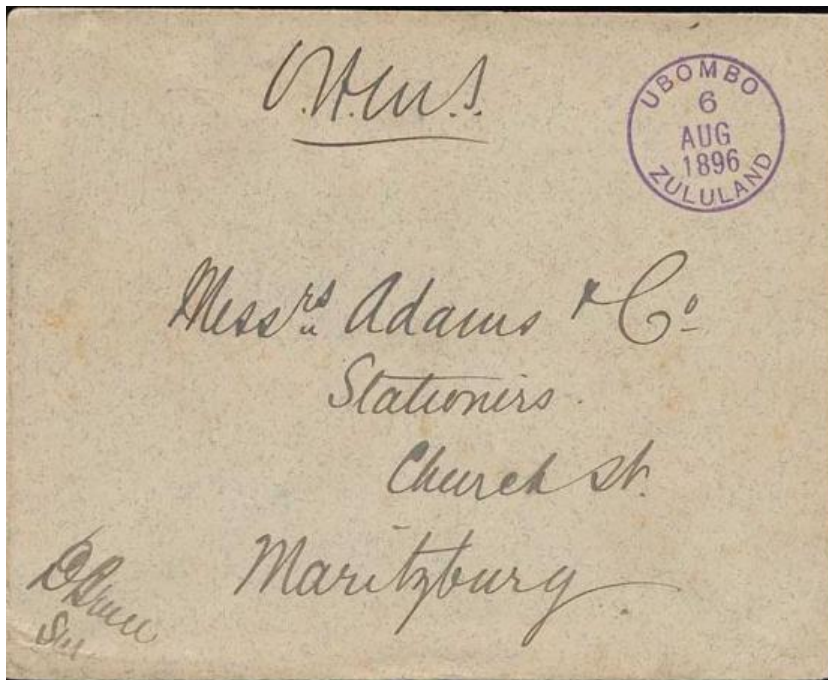 O.H.M.S.
UBOMBO
6
AUG
1896
ZULULAND
Messrs Adams & Co
Stationers
Church St.
Maritzburg